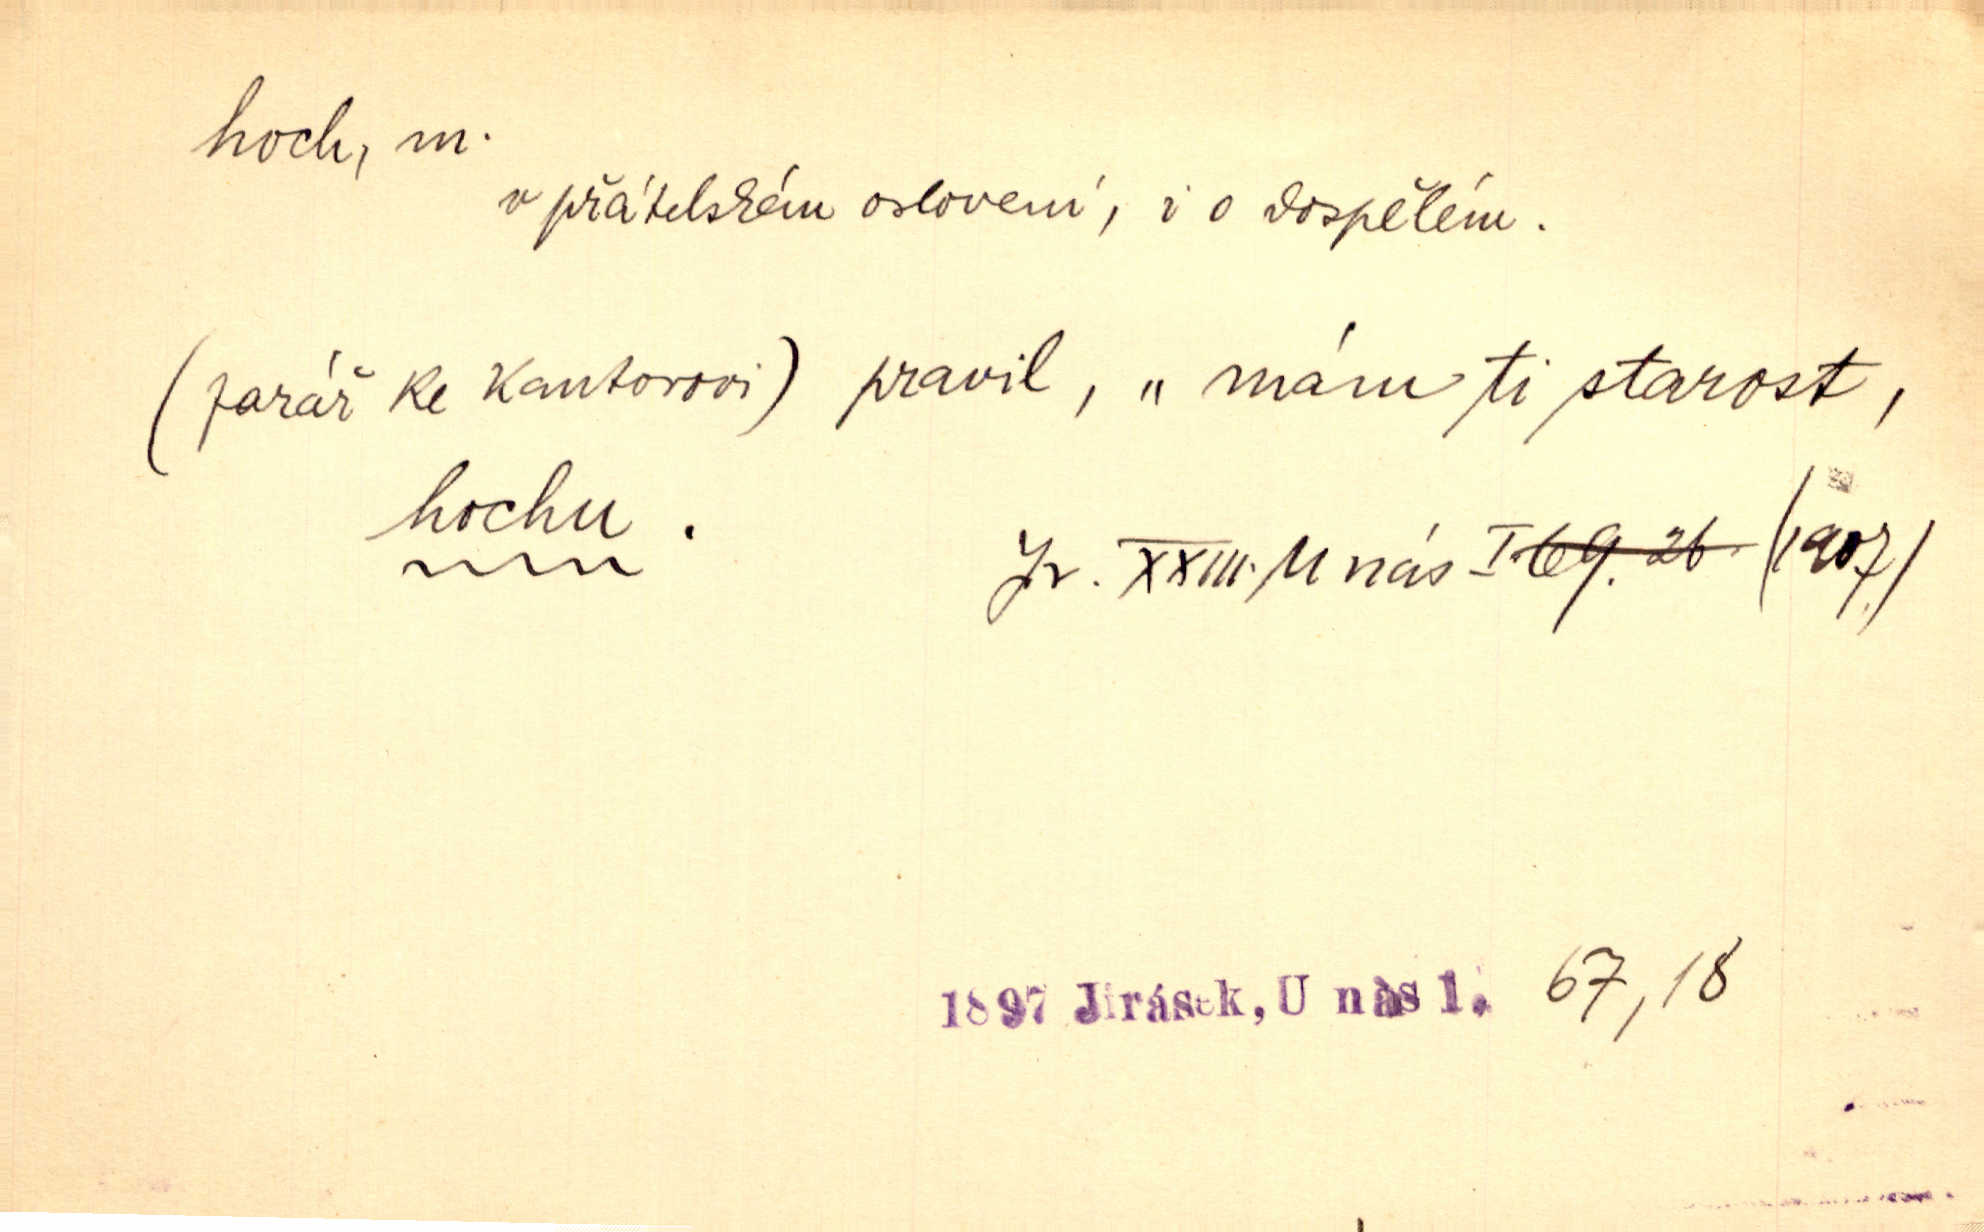 hoch, m.
v přátelském oslovení, i o dospělém.
(farář ke kantorovi) pravil, „mám ti starost,
hochu.
Jr. XXIII. U nás I 69. 26 (1907)
1897 Jirásek, U nás 1. 67, 18